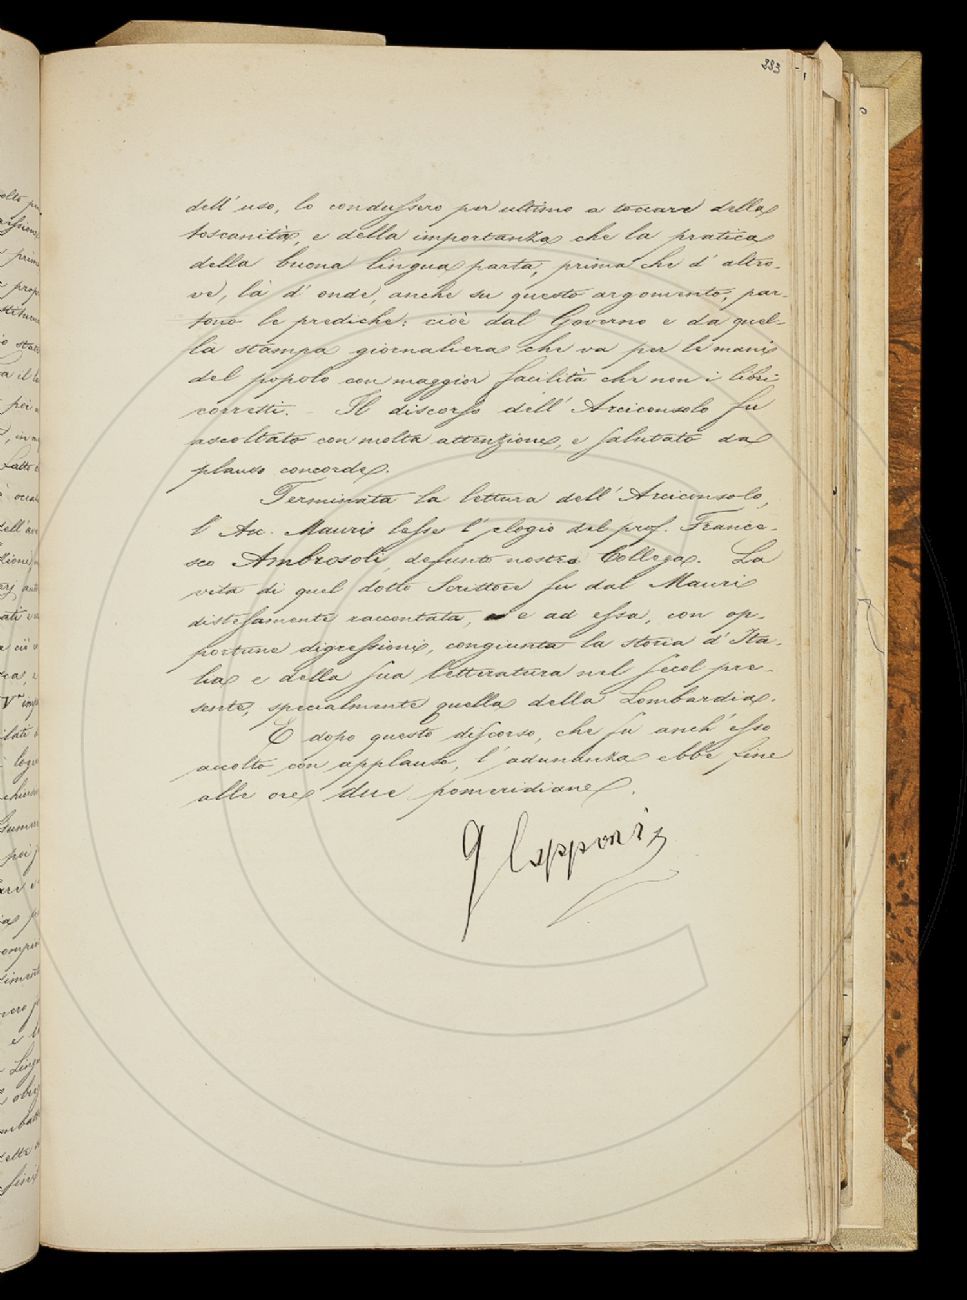 283
dell' uso, lo condussero per ultimo a toccare della
toscanità e della importanza che la pratica
della buona lingua parta, prima che d' altro-
ve, là d' onde, anche su questo argomento, par-
tono le prediche: cioè dal Governo e da quel-
la stampa giornaliera che va per le mani
del popolo con maggior facilità che non i libri
corretti. - Il discorso dell' Arciconsolo fu
ascoltato con molta attenzione, e salutato da
plauso concorde.
Terminata la lettura dell' Arciconsolo,
l' Ac. Mauri lesse l' elogio del prof. France-
sco Ambrosoli, defunto nostro Collega. La
vita di quel dotto Scrittore fu dal Mauri
distesamente raccontata, e ad essa, con op-
portune digressioni, congiunta la storia d' Ita-
lia e della sua letteratura nel secol pre-
sente, specialmente quella della Lombardia.
E dopo questo discorso, che fu anch' esso
accolto con applauso, l' adunanza ebbe fine
alle ore due pomeridiane.
G Capponi